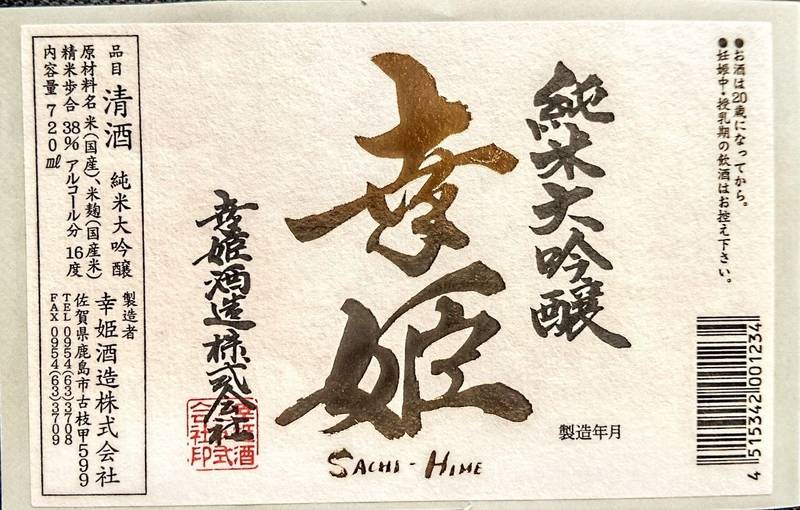 ●お酒は20歳になってから。
●妊娠中・授乳期の飲酒はお控え下さい。
純米大吟醸
幸姫
SACHI-HIME
製造年月
幸姫酒造株式会社
品目 清酒 純米大吟醸
原材料名 米(国産)、米麹(国産米)
精米歩合 38% アルコール分 16度
内容量 720㎖
製造者
幸姫酒造株式会社
佐賀県鹿島市古枝甲599
TEL 0954(63)3708
FAX 0954(63)3709
4 515342 001234